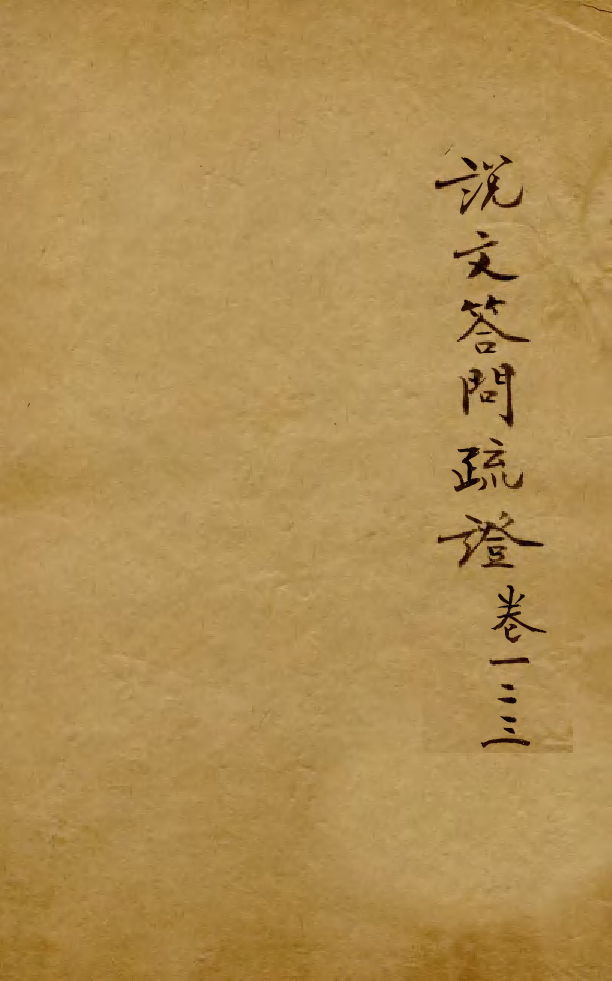 說文答問疏證卷一二三